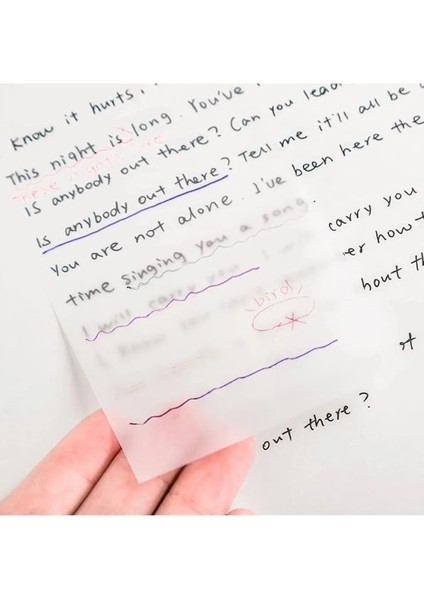 Know it hurts,
This night is long. You've
Is anybody out there? Can you lead
Is anybody out there? Tell me it'll all be
You are not alone. I've been here the
time singing you a song. carry you
I will carry you er how t
bird hout th
out there?